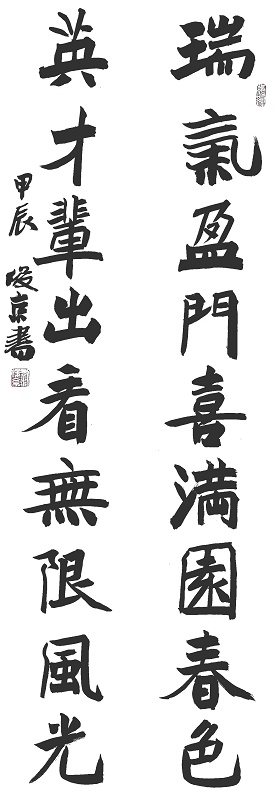 瑞氣盈門喜滿園春色
英才輩出看無限風光
甲辰 俊京書